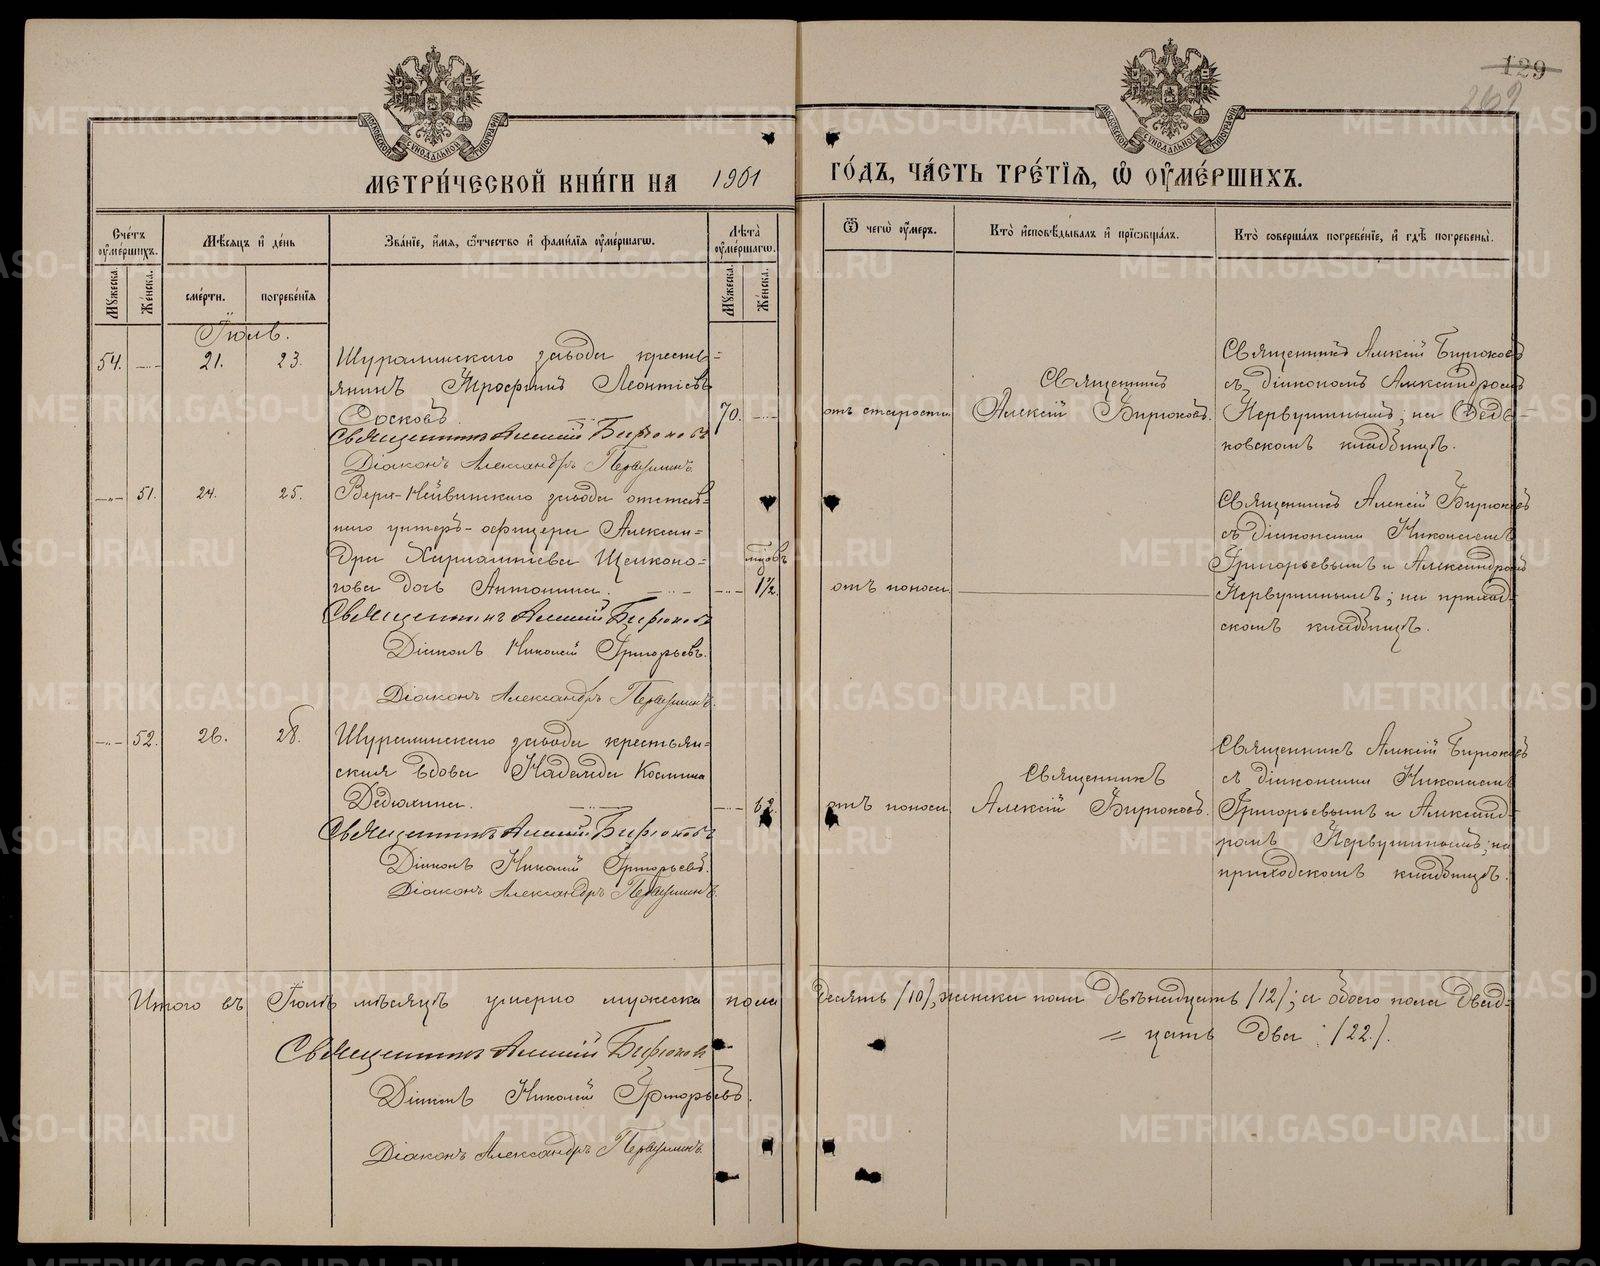 129
262
МОСКОВСКОЙ СѴНОДАЛЬНОЙ ТИПОГРАФІИ
МОСКОВСКОЙ СѴНОДАЛЬНОЙ ТИПОГРАФІИ
МЕТРИ́ЧЕСКОЙ КНИ́ГИ НА 1901 ГО́ДЪ, ЧА́СТЬ ТРЕ́ТІѦ, Ѡ҆ ОУ҆МЕ́РШИХЪ.
Сче́тъ оу҆ме́ршихъ.
Мѣ́сяцъ и҆ де́нь
Зва́нїе, и҆́мя, ѻ҆́тчество и҆ фами́лїя оу҆ме́ршагѡ.
Лѣ́та оу҆ме́ршагѡ.
Ѿ чегѡ̀ оу҆́меръ.
Кто̀ и҆сповѣ́дывалъ и҆ прїѡбща́лъ.
Кто̀ соверша́лъ погребе́нїе, и҆ гдѣ̀ погребены̀.
Мꙋ́жеска.
Же́нска.
сме́рти.
погребе́нїя
Мꙋ́жеска.
Же́нска.
Іюль.
54. -..- 21. 23.
Шуралинскаго завода кресть=
янинъ Трофимъ Леонтіевъ
Сосковъ. 70. -..-
Священникъ Алексій Бирюковъ
Діаконъ Александръ Первушинъ.
отъ старости.
Священникъ
Алексій Бирюковъ.
Священникъ Алексій Бирюковъ
съ діакономъ Александромъ
Первушинымъ; на
ковскомъ кладбищѣ.
-..- 51. 24. 25.
Верх-Нейвинскаго завода отстав=
наго унтеръ-офицера Алексан=
дра Харлампіева Щелконо=
гова дочь Антонина. -..- -..- мцовъ 1½.
Священникъ Алексій Бирюковъ
Діаконъ Николай Григорьевъ.
Діаконъ Александръ Первушинъ.
отъ поноса.
Священникъ Алексій Бирюковъ
съ діаконами Николаемъ
Григорьевымъ и Александромъ
Первушинымъ; на приход-
скомъ кладбищѣ.
-..- 52. 26. 28.
Шуралинскаго завода крестьян=
ская вдова Надежда Косьмина
Дедюхина. -..- -..- 62.
Священникъ Алексій Бирюковъ
Діаконъ Николай Григорьевъ.
Діаконъ Александръ Первушинъ.
отъ поноса.
Священникъ
Алексій Бирюковъ.
Священникъ Алексій Бирюковъ
съ діаконами Николаемъ
Григорьевымъ и Александ-
ромъ Первушинымъ; на
приходскомъ кладбищѣ.
Итого въ Іюлѣ мѣсяцѣ умерло мужеска пола десять /10/, женска пола двѣнадцать /12/; а обоего пола двад=
= цать два: /22./.
Священникъ Алексій Бирюковъ
Діаконъ Николай Григорьевъ.
Діаконъ Александръ Первушинъ.
METRIKI.GASO-URAL.RU